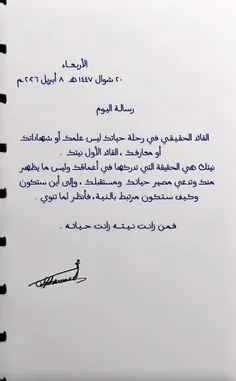 الأربعاء
٢٠ شوال ١٤٤٧هـ ٨ أبريل ٢٠٢٦م
رسالة اليوم
القائد الحقيقي في رحلة حياتك ليس علمك أو شهاداتك
أو معارفك ، القائد الأول نيتك .
نيتك هي الحقيقة التي تدركها في أعماقك وليس ما يظهر
منك وتدعي مصير حياتك ومستقبلك ، وإلى أين ستكون
وكيف ستكون مرتبط بالنية، فأنظر لما تنوي .
فمن زانت نيته زانت حياته .